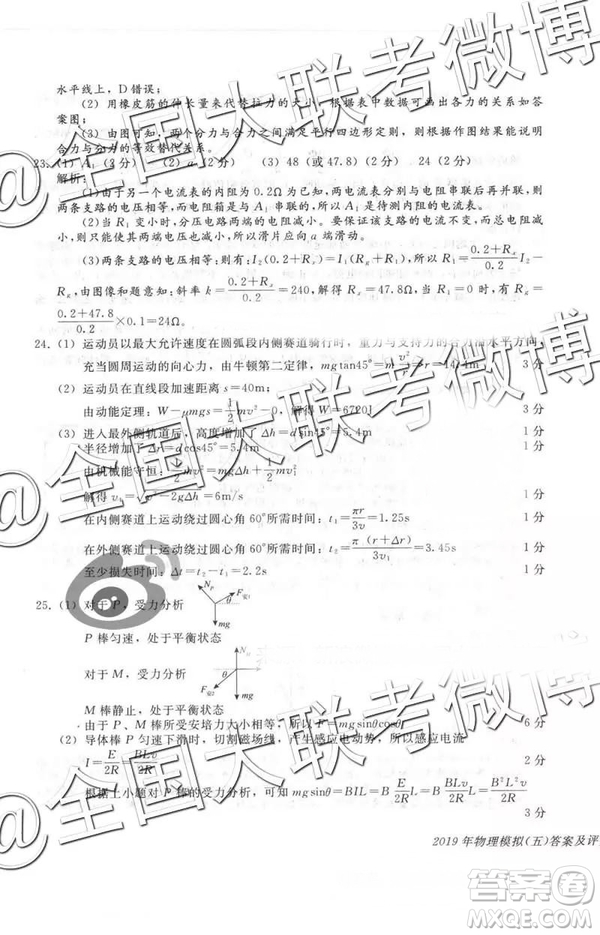 水平线上,D错误;
(2) 用橡皮筋的伸长量来代替拉力的大小,根据表中数据可画出各力的关系如答
案图;
(3) 由图可知,两个分力与合力之间满足平行四边形定则,所以根据作图结果能说明
合力与分力的等效替代关系。
23.(1) A₁(2分) (2) a(2分) (3) 48(或47.8)(2分) 24(2分)
解析:
(1)由于另一个电流表的内阻为0.2Ω为已知,所以把电流表分别与电阻串联后再并联,则
两条支路的电压相等;电阻箱与电流表串联,
(2)当R₁变小时,分压电路两端的电压变小。要保证该支路的电流不变,而总电阻减
小,所以只能让两端电压也减小,所以滑片应向a端滑动。
(3)两条支路的电压相等;则有:I₂(0.2+Rₓ)=I₁(Rg+R₁),所以R₁=(0.2+Rₓ)/I₁ I₂-
Rg,由图像和题意知:斜率k=(0.2+Rₓ)/0.2=240,解得Rₓ=47.8Ω,当并联时,则有R=
(0.2+47.8)/0.2×0.1=24Ω。
24.(1) 运动员以最大允许速度在圆弧段内侧赛道骑行时,重力与支持力的合力沿水平方向,
充当圆周运动的向心力,由牛顿第二定律,mgtan45°=m v²/r r= =14.4m 3分
(2) 运动员在直线段加速距离s=40m;
由动能定理:W-μmgs=1/2 mv²,解得W=6720J 3分
(3) 进入最外侧轨道后,高度增加了Δh=dsin45°=5.4m 1分
半径增加了Δr=dcos45°=5.4m
由机械能守恒:1/2 mv²=mgΔh+1/2 mv₁² 1分
解得v₁=√(v²-2gΔh)=6m/s 1分
在内侧赛道上运动绕过圆心角60°所需时间:t₁=πr/3v=1.25s 1分
在外侧赛道上运动绕过圆心角60°所需时间:t₂=π(r+Δr)/3v₁=3.45s 1分
至少损失时间:Δt=t₂-t₁=2.2s 1分
25.(1) 对于P,受力分析
P棒匀速,处于平衡状态
对于M,受力分析
M棒静止,处于平衡状态
由于P、M棒所受安培力大小相等,所以F=mgsinθcosθ 6分
(2) 导体棒P匀速下滑时,切割磁场线,产生感应电动势,所以感应电流
I=E/2R=BLv/2R
根据上小题对P棒的受力分析,可知mgsinθ=BIL=B E/2R L=B BLv/2R L=B²L²v/2R
3分
2019年物理模拟(五)答案及评
@全国大联考微博
@全国大联考微博
@全国大联考微博
答案卷
MXQE.COM